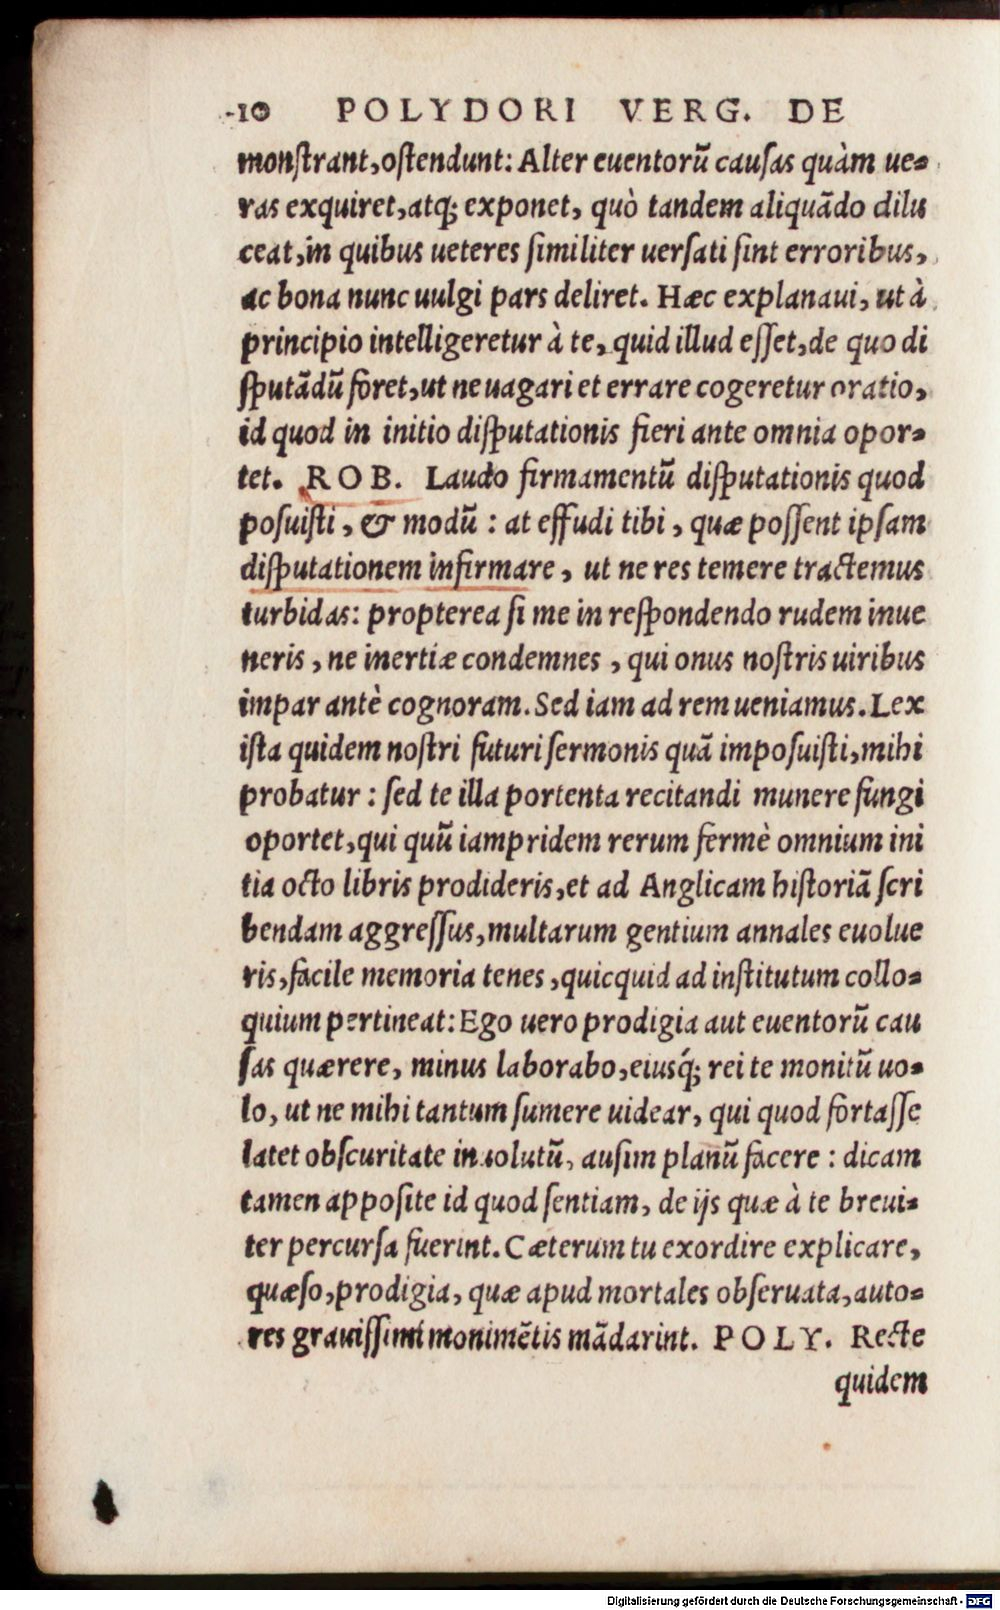 10 POLYDORI VERG. DE
monſtrant, oſtendunt: Alter euentorũ cauſas quàm ue-
ras exquiret, atq; exponet, quò tandem aliquãdo dilu
ceat, in quibus ueteres ſimiliter uerſati ſint erroribus,
ac bona nunc uulgi pars deliret. Hæc explanaui, ut à
principio intelligeretur à te, quid illud eſſet, de quo di
ſputãdũ foret, ut ne uagari et errare cogeretur oratio,
id quod in initio diſputationis fieri ante omnia opor-
tet. ROB. Laudo firmamentũ diſputationis quod
poſuiſti, & modũ: at effudi tibi, quæ poſſent ipſam
diſputationem infirmare, ut ne res temere tractemus
turbidas: propterea ſi me in reſpondendo rudem inue
neris, ne inertiæ condemnes, qui onus noſtris uiribus
impar antè cognoram. Sed iam ad rem ueniamus. Lex
iſta quidem noſtri futuri ſermonis quã impoſuiſti, mihi
probatur: ſed te illa portenta recitandi munere fungi
oportet, qui quũ iampridem rerum fermè omnium ini
tia octo libris prodideris, et ad Anglicam hiſtoriã ſcri
bendam aggreſſus, multarum gentium annales euolue
ris, facile memoria tenes, quicquid ad inſtitutum collo-
quium pertineat: Ego uero prodigia aut euentorũ cau
ſas quærere, minus laborabo, eiusq́; rei te monitũ uo-
lo, ut ne mihi tantum ſumere uidear, qui quod fortaſſe
latet obſcuritate inuolutũ, auſim planũ facere: dicam
tamen appoſite id quod ſentiam, de ijs quæ à te breui-
ter percurſa fuerint. Cæterum tu exordire explicare,
quæſo, prodigia, quæ apud mortales obſeruata, auto-
res grauiſſimi monimẽtis mãdarint. POLY. Recte
quidem
Digitalisierung gefördert durch die Deutsche Forschungsgemeinschaft - DFG